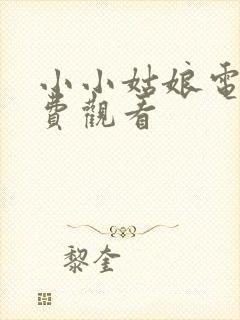 小小姑娘電
費觀看
黎奎